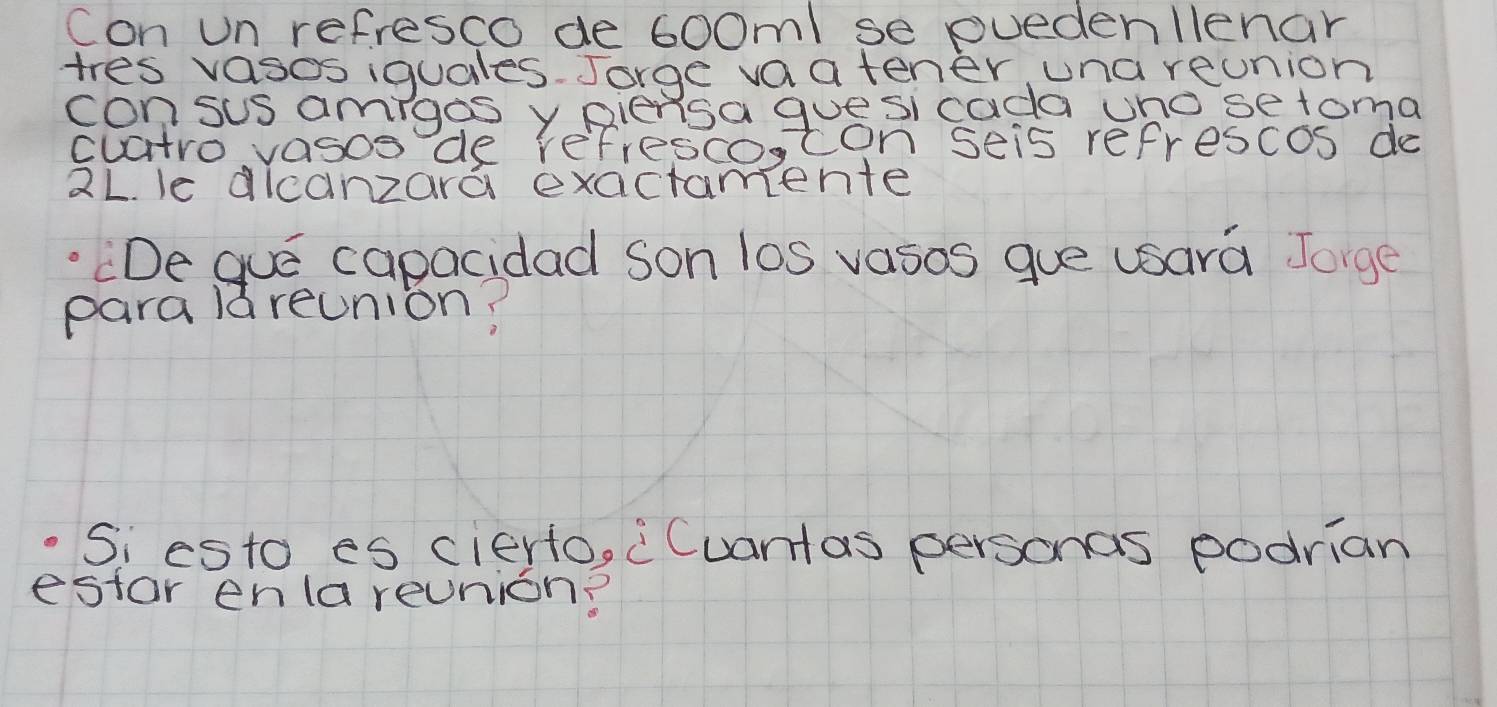 Con un refresco de 600ml se pueden llenar
tres vasos iguales. Jorge va a tener una reunion
con sus amigos y piensa que si cada uno se toma
cuatro vasos de refresco, con seis refrescos de
2L. le alcanzará exactamente
• ¿De qué capacidad son los vasos que usará Jorge
para la reunión?
• Si esto es cierto, ¿Cuantas personas podrían
estar en la reunión?